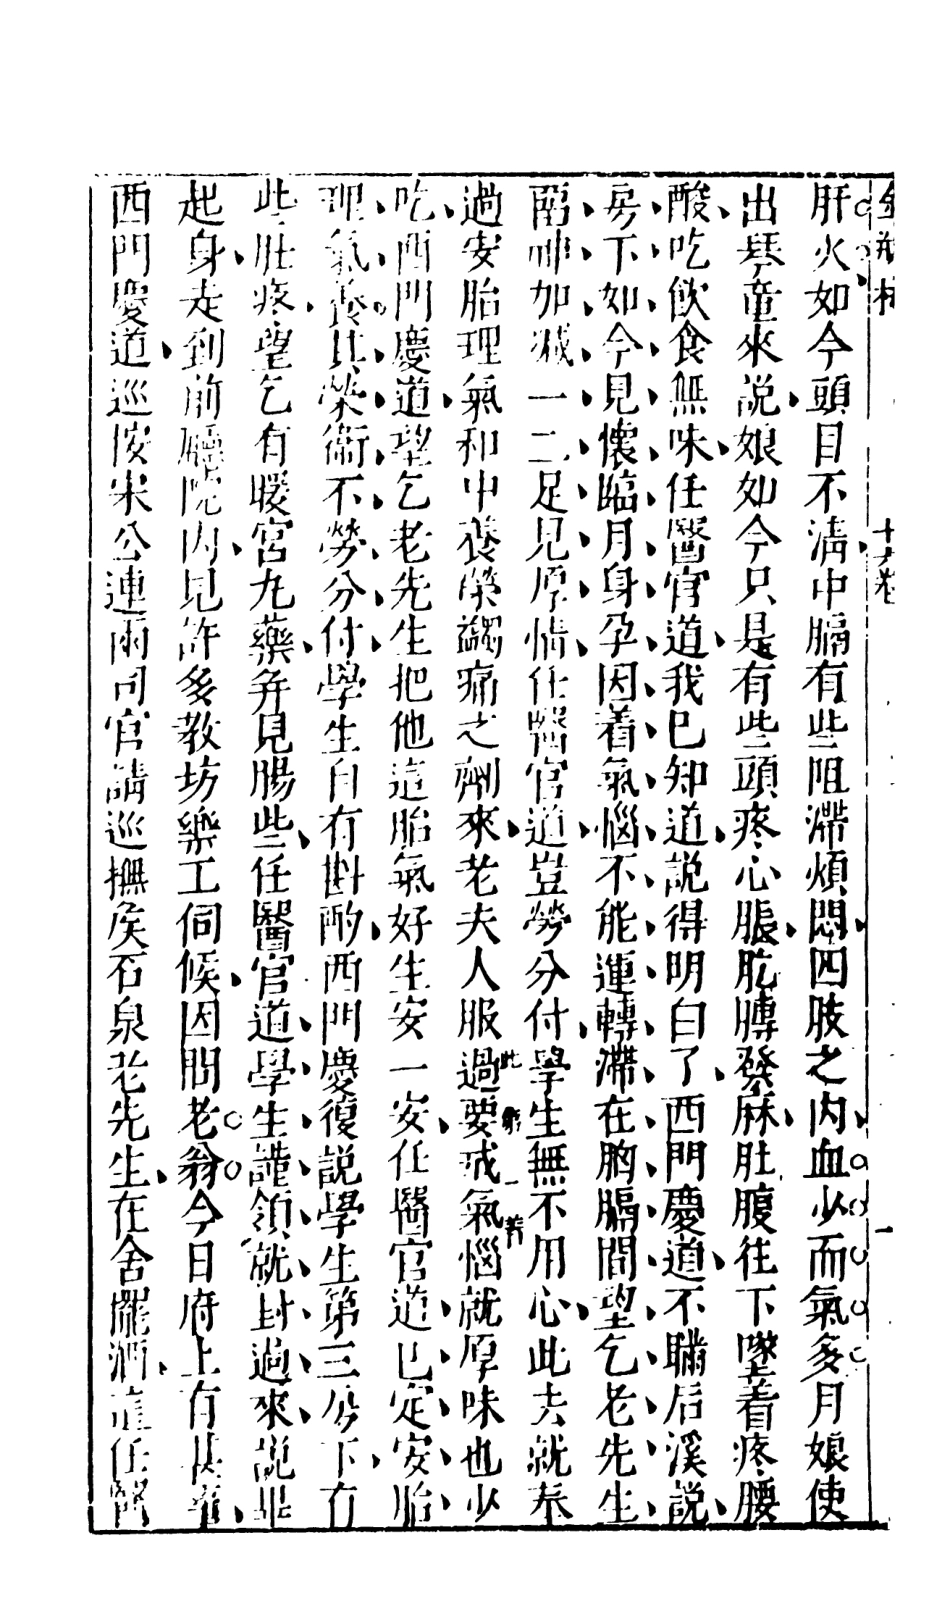 金瓶梅 十六卷
肝火如今頭目不淸中膈有些阻滯煩悶四肢之内血少而氣多月娘使
出琴童來説娘如今只是有些頭疼心脹胳膊發麻肚腹往下墜着疼腰
酸吃飲食無味任醫官道我已知道説得明白了西門慶道不瞞后溪説
房下如今見懷臨月身孕因着氣惱不能運轉滯在胸膈間望乞老先生
畱神加减一二足見厚情任醫官道豈勞分付學生無不用心此去就奉
過安胎理氣和中養榮蠲痛之劑來老夫人服過要戒氣惱就厚味也少
吃西門慶道望乞老先生把他這胎氣好生安一安任醫官道已定安胎
理氣養其榮衛不勞分付學生自有斟酌西門慶復説學生第三房下有
些肚疼望乞有暖宮丸藥并見賜些任醫官道學生謹領就封過來説畢
起身走到前廳院内見許多教坊樂工伺候因問老翁今日府上有甚事
西門慶道巡按宋公連兩司官請巡撫矦石泉老先生在舍擺酒這任醫